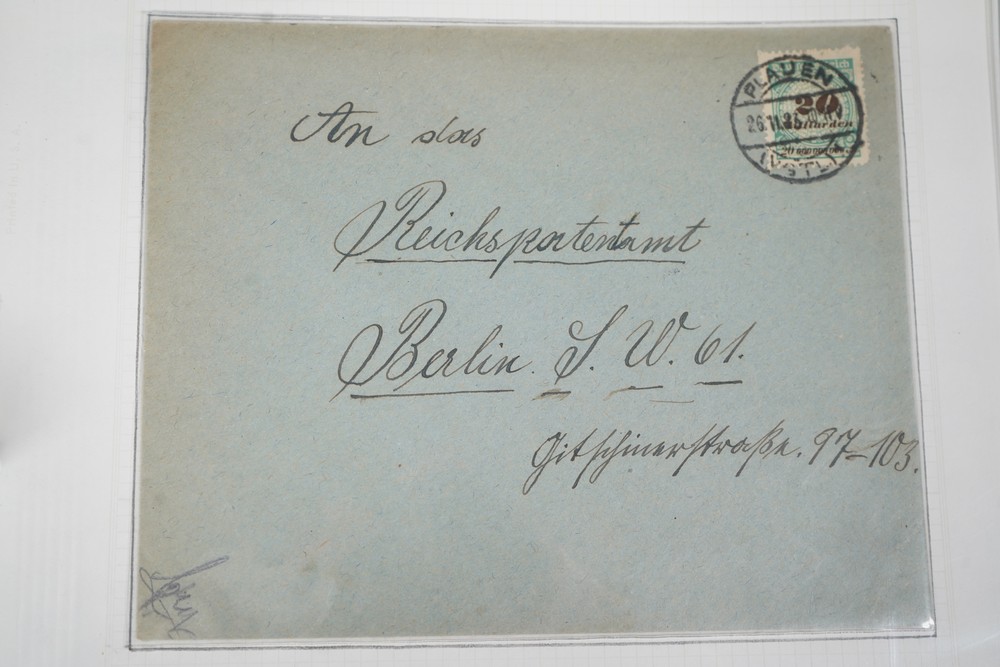 PLAUEN
26.11.23
(VGTL.)
20
Milliarden
An das
Reichspatentamt
Berlin. S. W. 61.
Gitschinerstraße. 97–103.